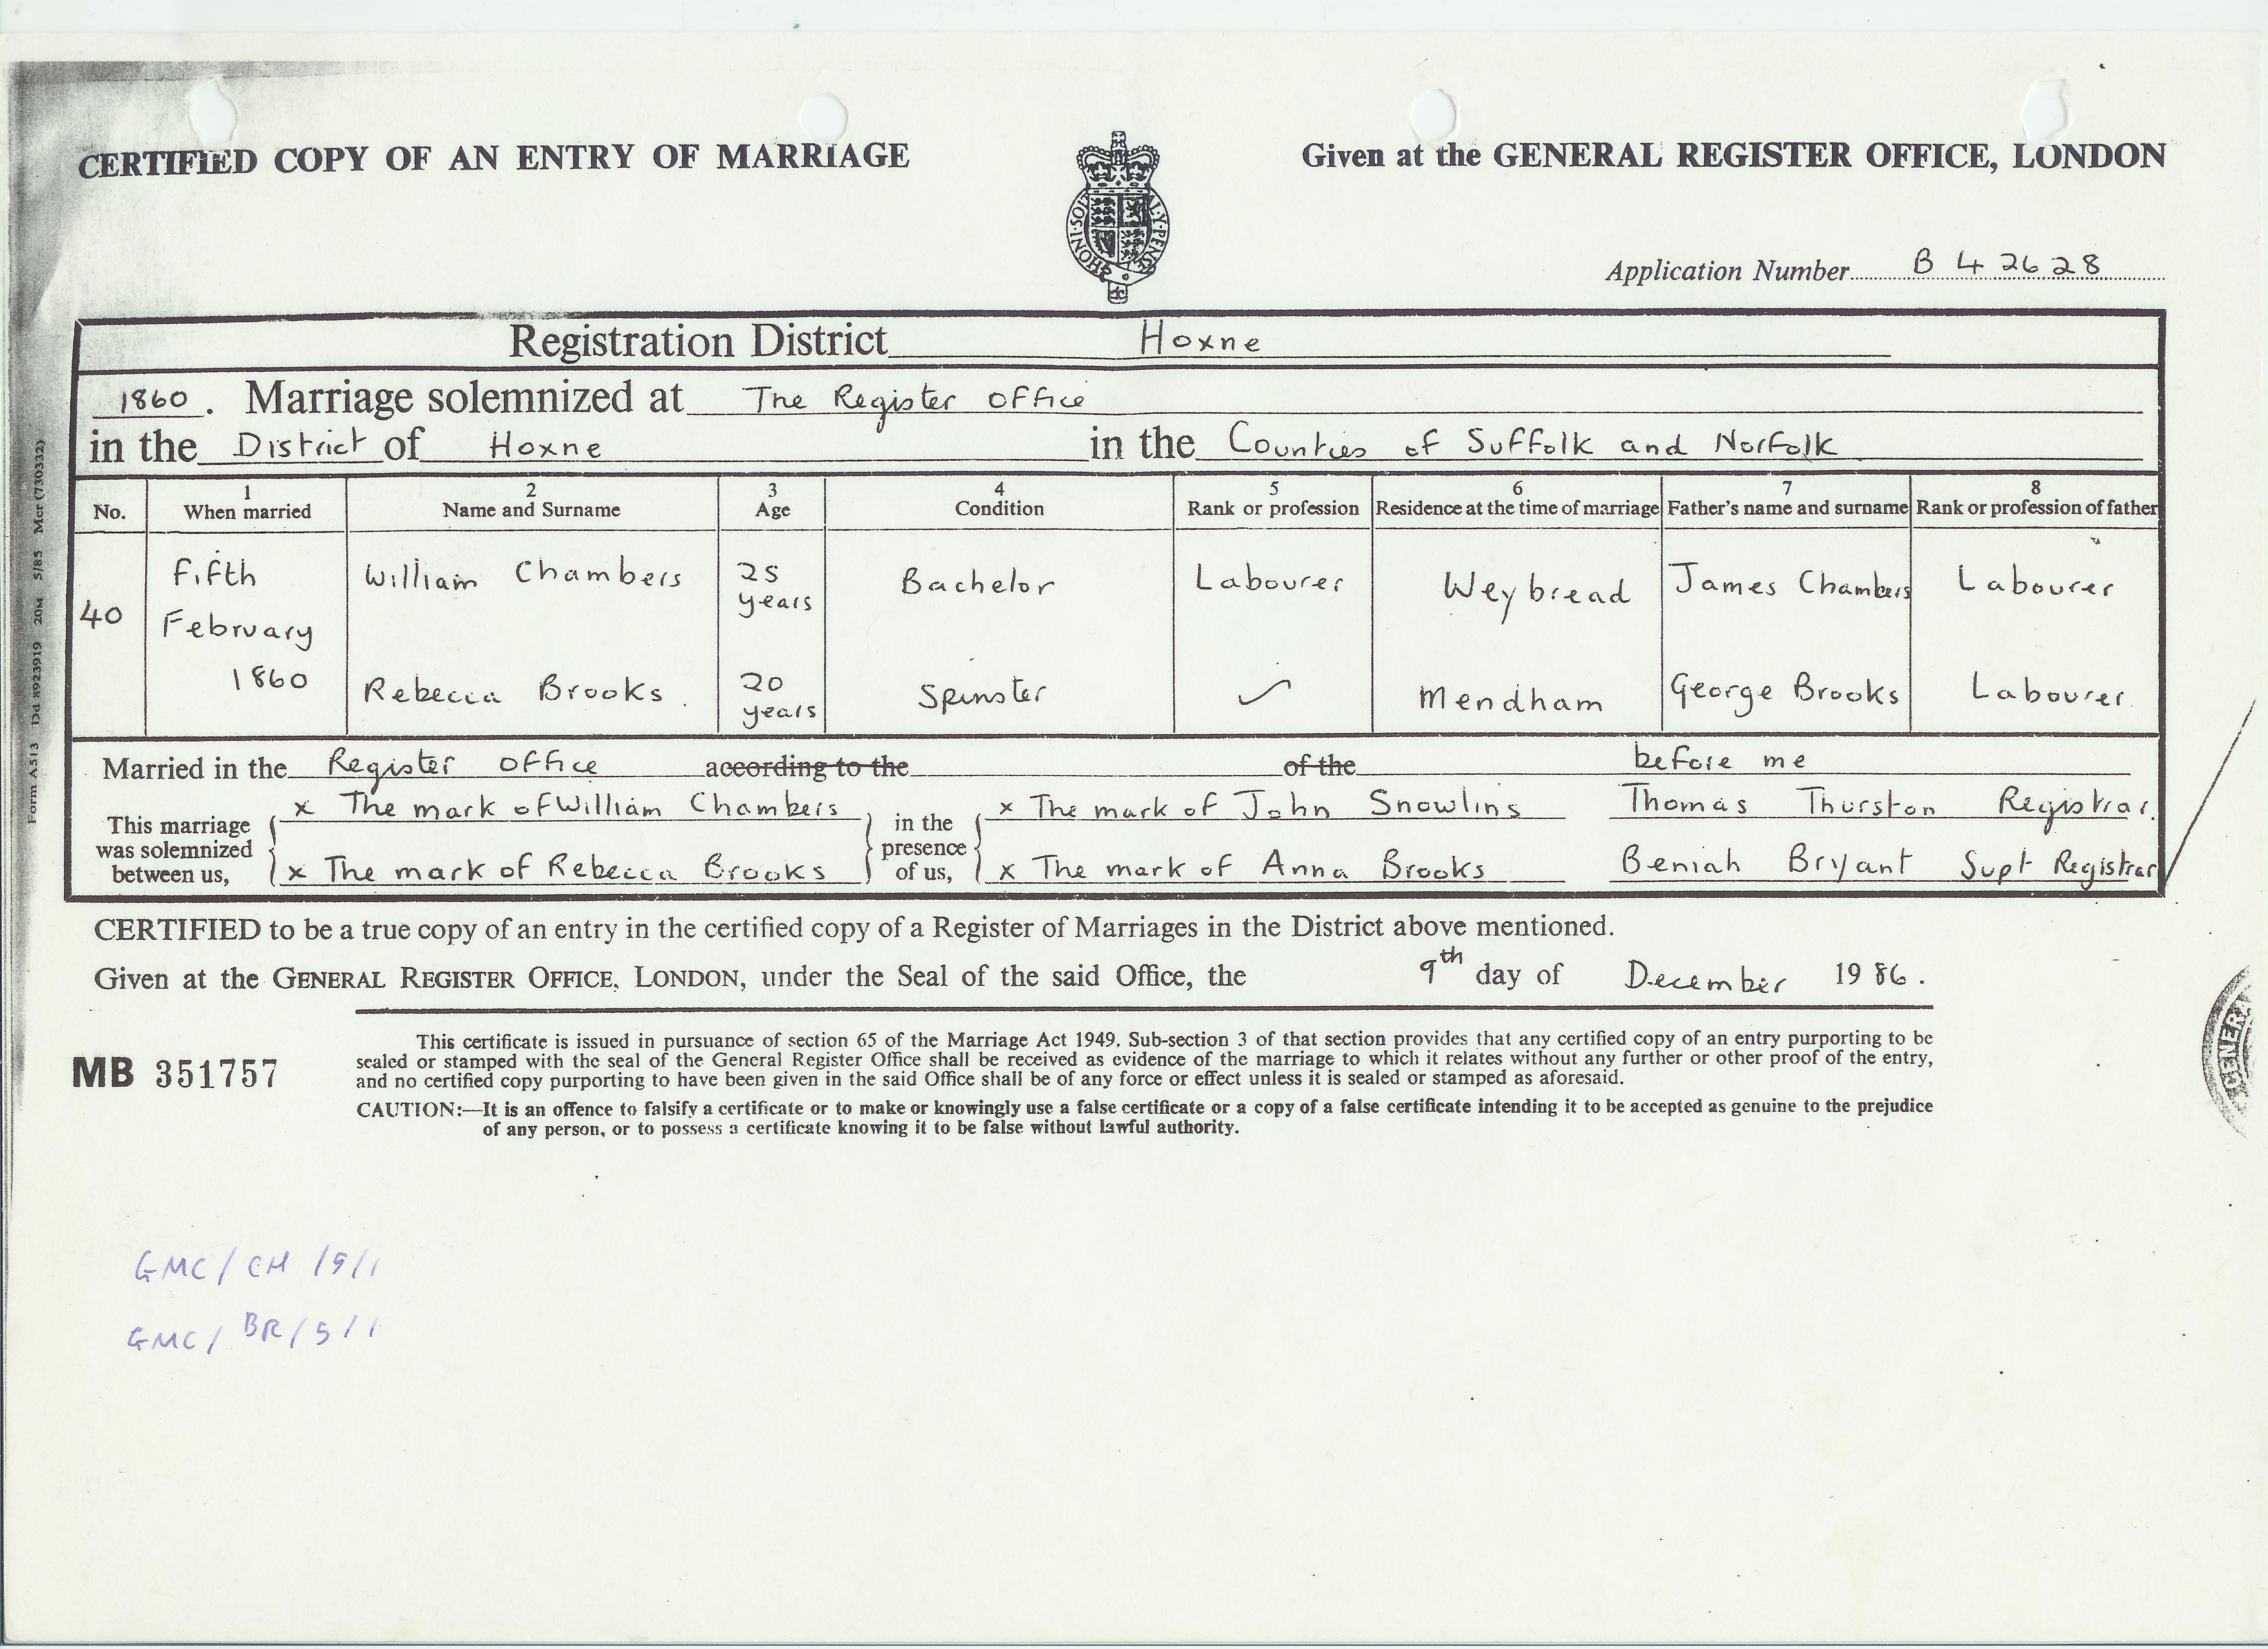 CERTIFIED COPY OF AN ENTRY OF MARRIAGE
Given at the GENERAL REGISTER OFFICE, LONDON
Application Number B 42628
Registration District Hoxne
1860. Marriage solemnized at The Register Office
in the District of Hoxne in the Counties of Suffolk and Norfolk
No. 1 When married 2 Name and Surname 3 Age 4 Condition 5 Rank or profession 6 Residence at the time of marriage 7 Father's name and surname 8 Rank or profession of father
40 Fifth February 1860
William Chambers 25 years Bachelor Labourer Weybread James Chambers Labourer
Rebecca Brooks 20 years Spinster Mendham George Brooks Labourer
Married in the Register Office according to the of the before me
This marriage was solemnized between us,
x The mark of William Chambers
x The mark of Rebecca Brooks
in the presence of us,
x The mark of John Snowlins
x The mark of Anna Brooks
Thomas Thurston Registrar.
Beniah Bryant Supt Registrar
CERTIFIED to be a true copy of an entry in the certified copy of a Register of Marriages in the District above mentioned.
Given at the GENERAL REGISTER OFFICE, LONDON, under the Seal of the said Office, the 9th day of December 1986.
MB 351757
This certificate is issued in pursuance of section 65 of the Marriage Act 1949. Sub-section 3 of that section provides that any certified copy of an entry purporting to be
sealed or stamped with the seal of the General Register Office shall be received as evidence of the marriage to which it relates without any further or other proof of the entry,
and no certified copy purporting to have been given in the said Office shall be of any force or effect unless it is sealed or stamped as aforesaid.
CAUTION:—It is an offence to falsify a certificate or to make or knowingly use a false certificate or a copy of a false certificate intending it to be accepted as genuine to the prejudice
of any person, or to possess a certificate knowing it to be false without lawful authority.
Form A513 Dd 8923919 20M 5/85 Mcr (730332)
GMC/CH/5/1
GMC/BR/5/1